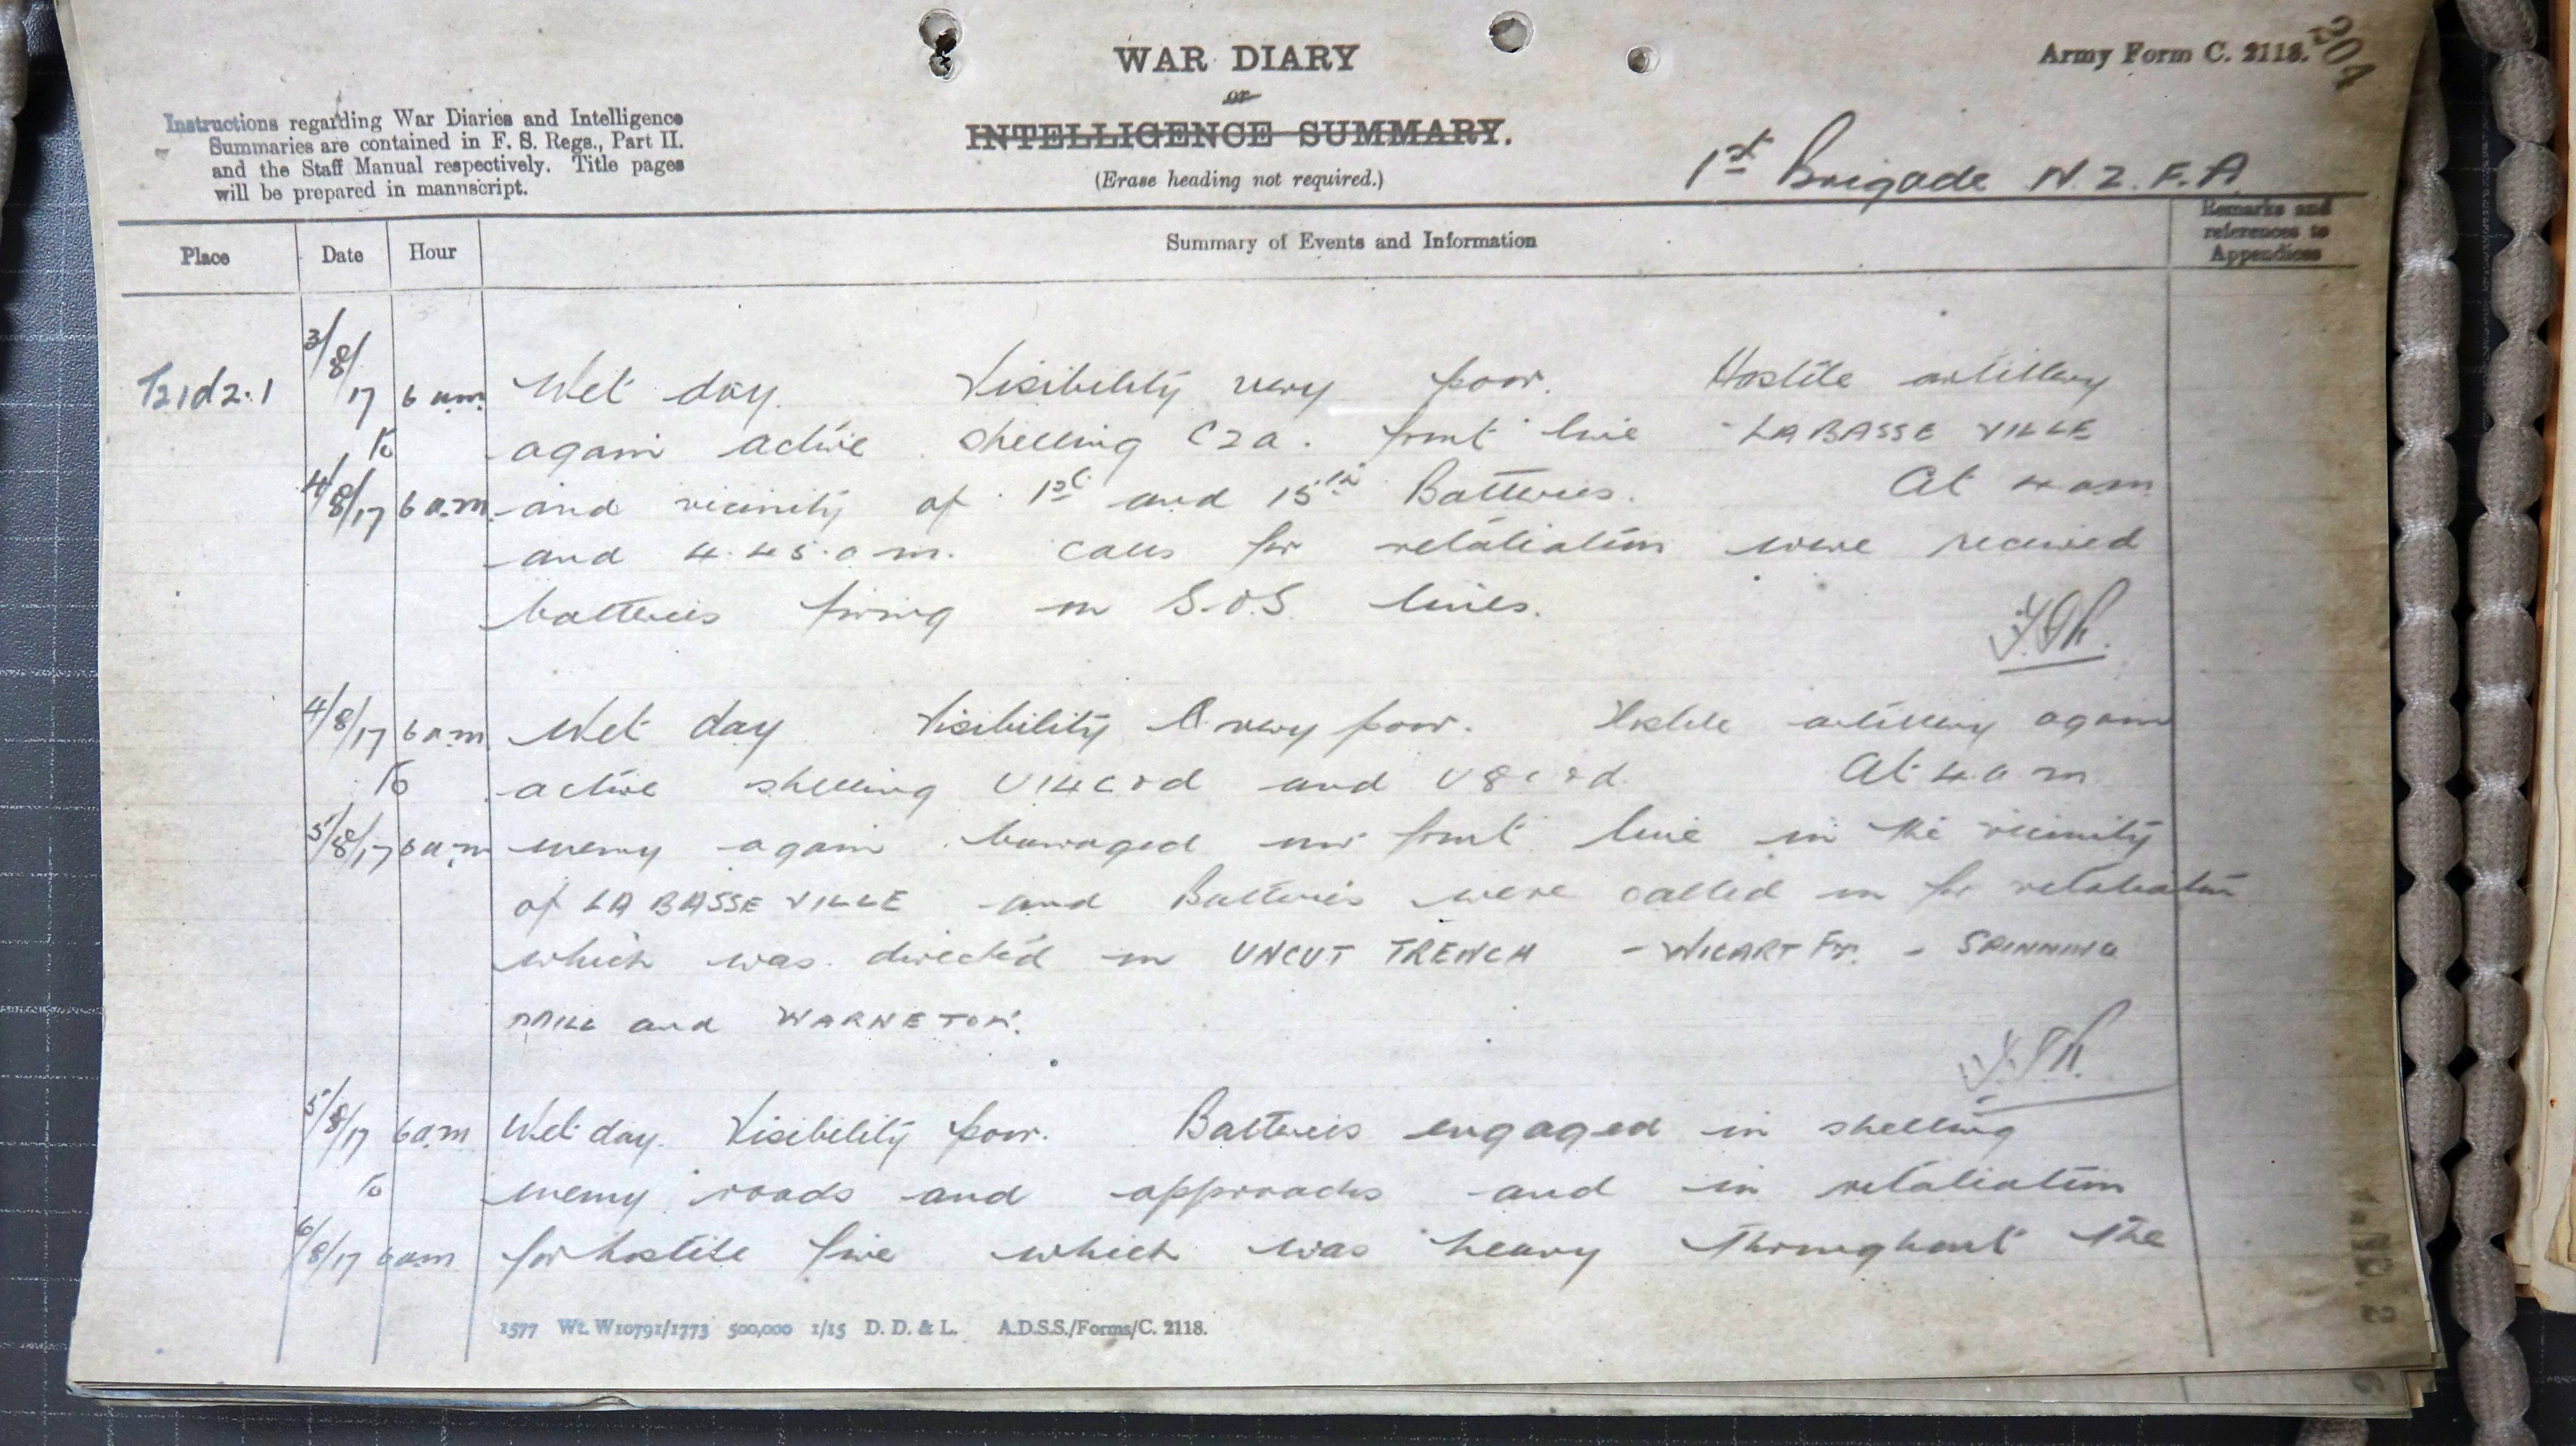 204
WAR DIARY
or
INTELLIGENCE SUMMARY.
(Erase heading not required.)
Army Form C. 2118.
Instructions regarding War Diaries and Intelligence
Summaries are contained in F. S. Regs., Part II.
and the Staff Manual respectively. Title pages
will be prepared in manuscript.
1st Brigade N.Z.F.A
Place Date Hour Summary of Events and Information Remarks and references to Appendices
T21d2.1 3/8/17 6 am. Wet day. Visibility very poor. Hostile artillery
to again active shelling C2a. front line LA BASSE VILLE
4/8/17 6 a.m. and vicinity of 1st and 15th Batteries. At 4 am
and 4.45.a m. calls for retaliation were received
batteries firing on S.O.S. lines.
4/8/17 6 a.m Wet day Visibility very poor. Hostile artillery again
to active shelling U14c & d and U8c & d. At 4.a m.
5/8/17 6 a.m enemy again barraged our front line in the vicinity
of LA BASSE VILLE and Batteries were called on for retaliation
which was directed on UNCUT TRENCH - WICART Fm. - SPINNING
MILL and WARNETON.
5/8/17 6a.m Wet day. Visibility poor. Batteries engaged in shelling
to enemy roads and approachs and in retaliation
6/8/17 6am for hostile fire which was heavy throughout the
1577 Wt. W10791/1773 500,000 1/15 D. D. & L. A.D.S.S./Forms/C. 2118.